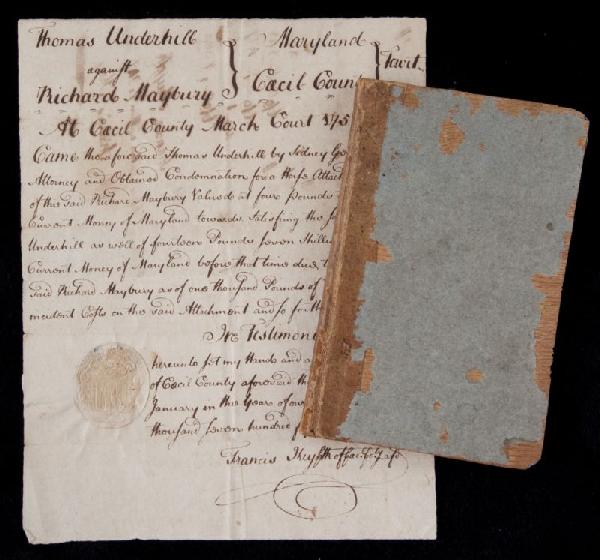 Thomas Underhill } Maryland }
against } } Scirt
Richard Maybury } Cæcil Coun
At Cæcil County March Court 175
Came the aforesaid Thomas Underhill by Sidney Ge
Attorney and Obtained Condemnation for a Horse Attac
of the said Richard Maybury Valued at four Pounds
Current Money of Maryland towards Satisfing the s
Underhill as well of fourteen Pounds Seven Shill
Current Money of Maryland before that time due t
said Richard Maybury as of one thousand Pounds of
incident Costs on the said Attachment and so forth
In Testimon
hereunto set my Hand and a
of Cæcil County aforesaid th
January in the Year of our
thousand seven hundred f
Francis Key